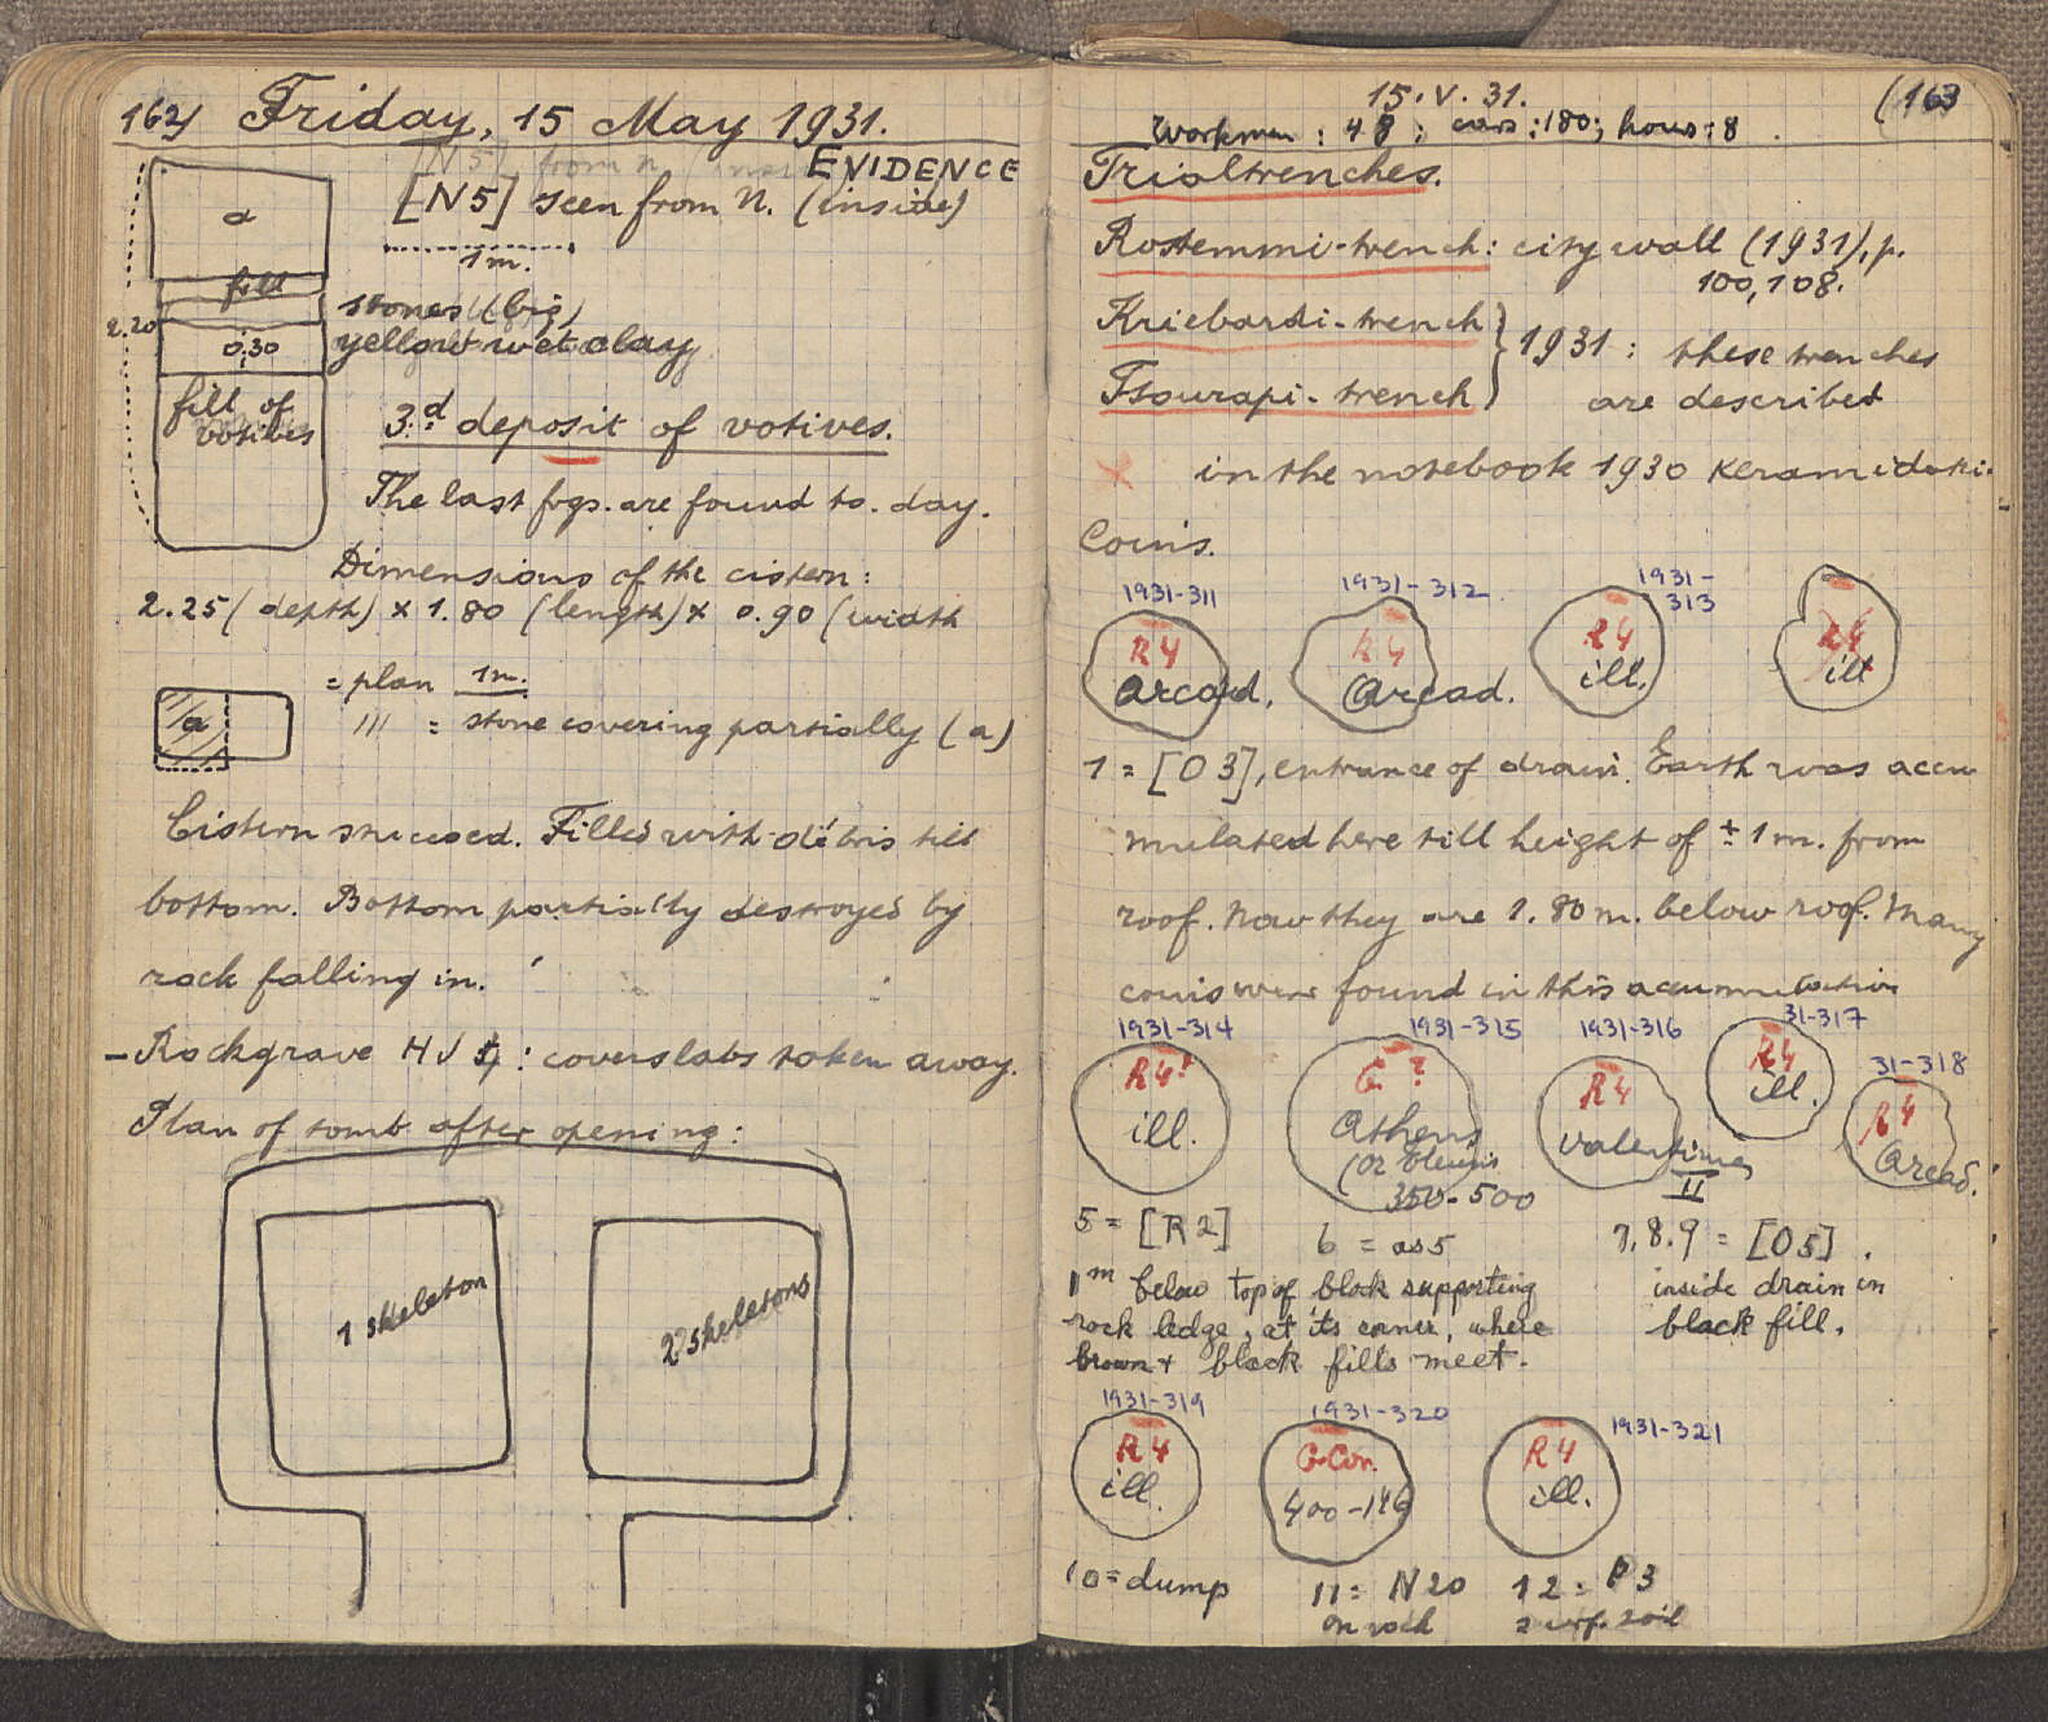 162) Friday, 15 May 1931.
EVIDENCE
[N5] seen from N. (inside)
1 m.
a
fill
stones (big)
2.20
0.30
yellow wet clay
fill of
votives
3.d deposit of votives.
The last frgs. are found to-day.
Dimensions of the cistern:
2.25 (depth) x 1.80 (length) x 0.90 (width
= plan 1m.
a
/// = stone covering partially (a)
Cistern stuccoed. Filled with débris till
bottom. Bottom partially destroyed by
rock falling in.
- Rockgrave HJ : coverslabs taken away.
Plan of tomb after opening:
1 skeleton
2 skeletons
15. V. 31.
(163
Workmen: 48; cars: 180; hours: 8.
Trialtrenches.
Rostemmi-trench: city wall (1931), p.
100, 108.
Kriebardi-trench
Tsourapi-trench
1931: these trenches
are described
x in the notebook 1930 Keramidaki.
Coins.
1931-311
1931-312
1931-
313
R4
Arcad.
R4
Arcad.
R4
ill.
R4
ill
1 = [O3], entrance of drain. Earth was accu
mulated here till height of ± 1 m. from
roof. Now they are 1.80 m. below roof. Many
coins were found in this accumulation
1931-314
1931-315
1931-316
31-317
31-318
R4!
ill.
G ?
Athens
(or Eleusis
350-500
R4
Valentinian
II
R4
ill.
R4
Arcad.
5 = [R2]
6 = as 5
7, 8. 9 = [O5].
1m below top of block supporting
rock ledge, at its corner, where
brown + black fills meet.
inside drain in
black fill.
1931-319
1931-320
1931-321
R4
ill.
G-Cor.
400-146
R4
ill.
10 = dump
11 = N20
on rock
12 = P3
surf. soil